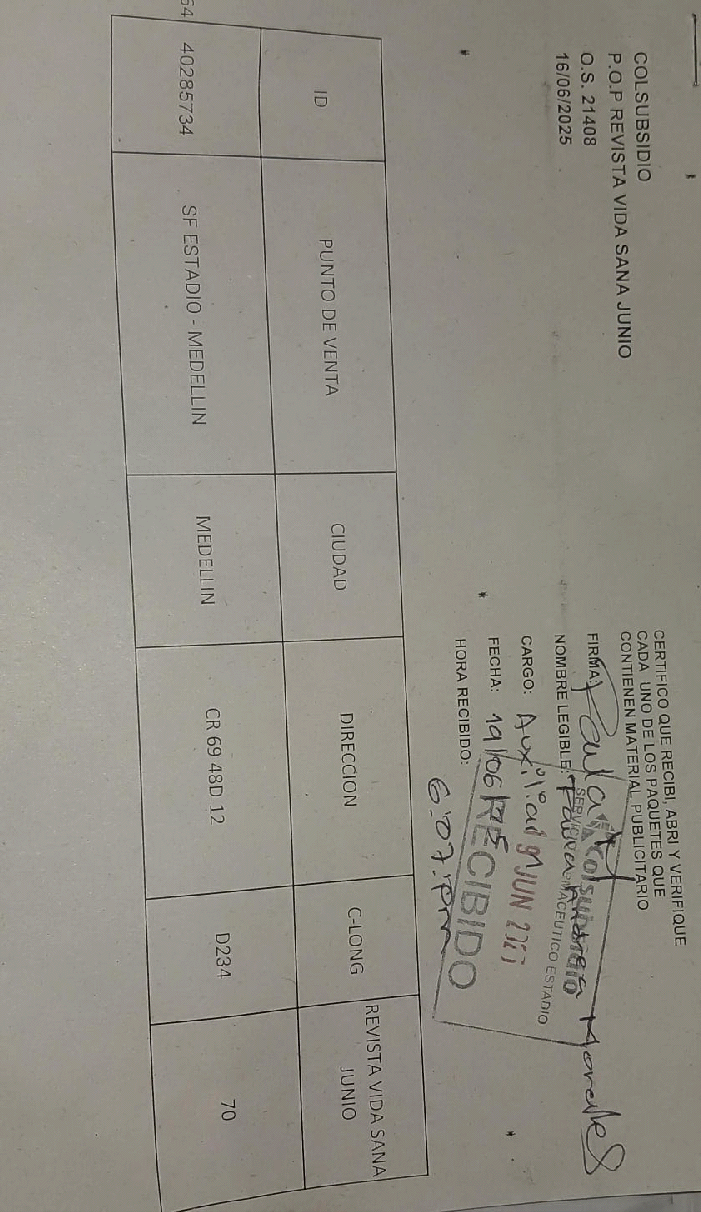 COLSUBSIDIO
P.O.P REVISTA VIDA SANA JUNIO
O.S. 21408
16/06/2025
CERTIFICO QUE RECIBI, ABRI Y VERIFIQUE
CADA UNO DE LOS PAQUETES QUE
CONTIENEN MATERIAL PUBLICITARIO
FIRMA: Paula
NOMBRE LEGIBLE: Paula Andrea Morales
Colsubsidio
FARMACEUTICO ESTADIO
CARGO: Auxiliar
JUN
FECHA: 19/06
RECIBIDO
HORA RECIBIDO: 6:07 pm
ID PUNTO DE VENTA CIUDAD DIRECCION C-LONG REVISTA VIDA SANA
JUNIO
64 40285734 SF ESTADIO - MEDELLIN MEDELLIN CR 69 48D 12 D234 70